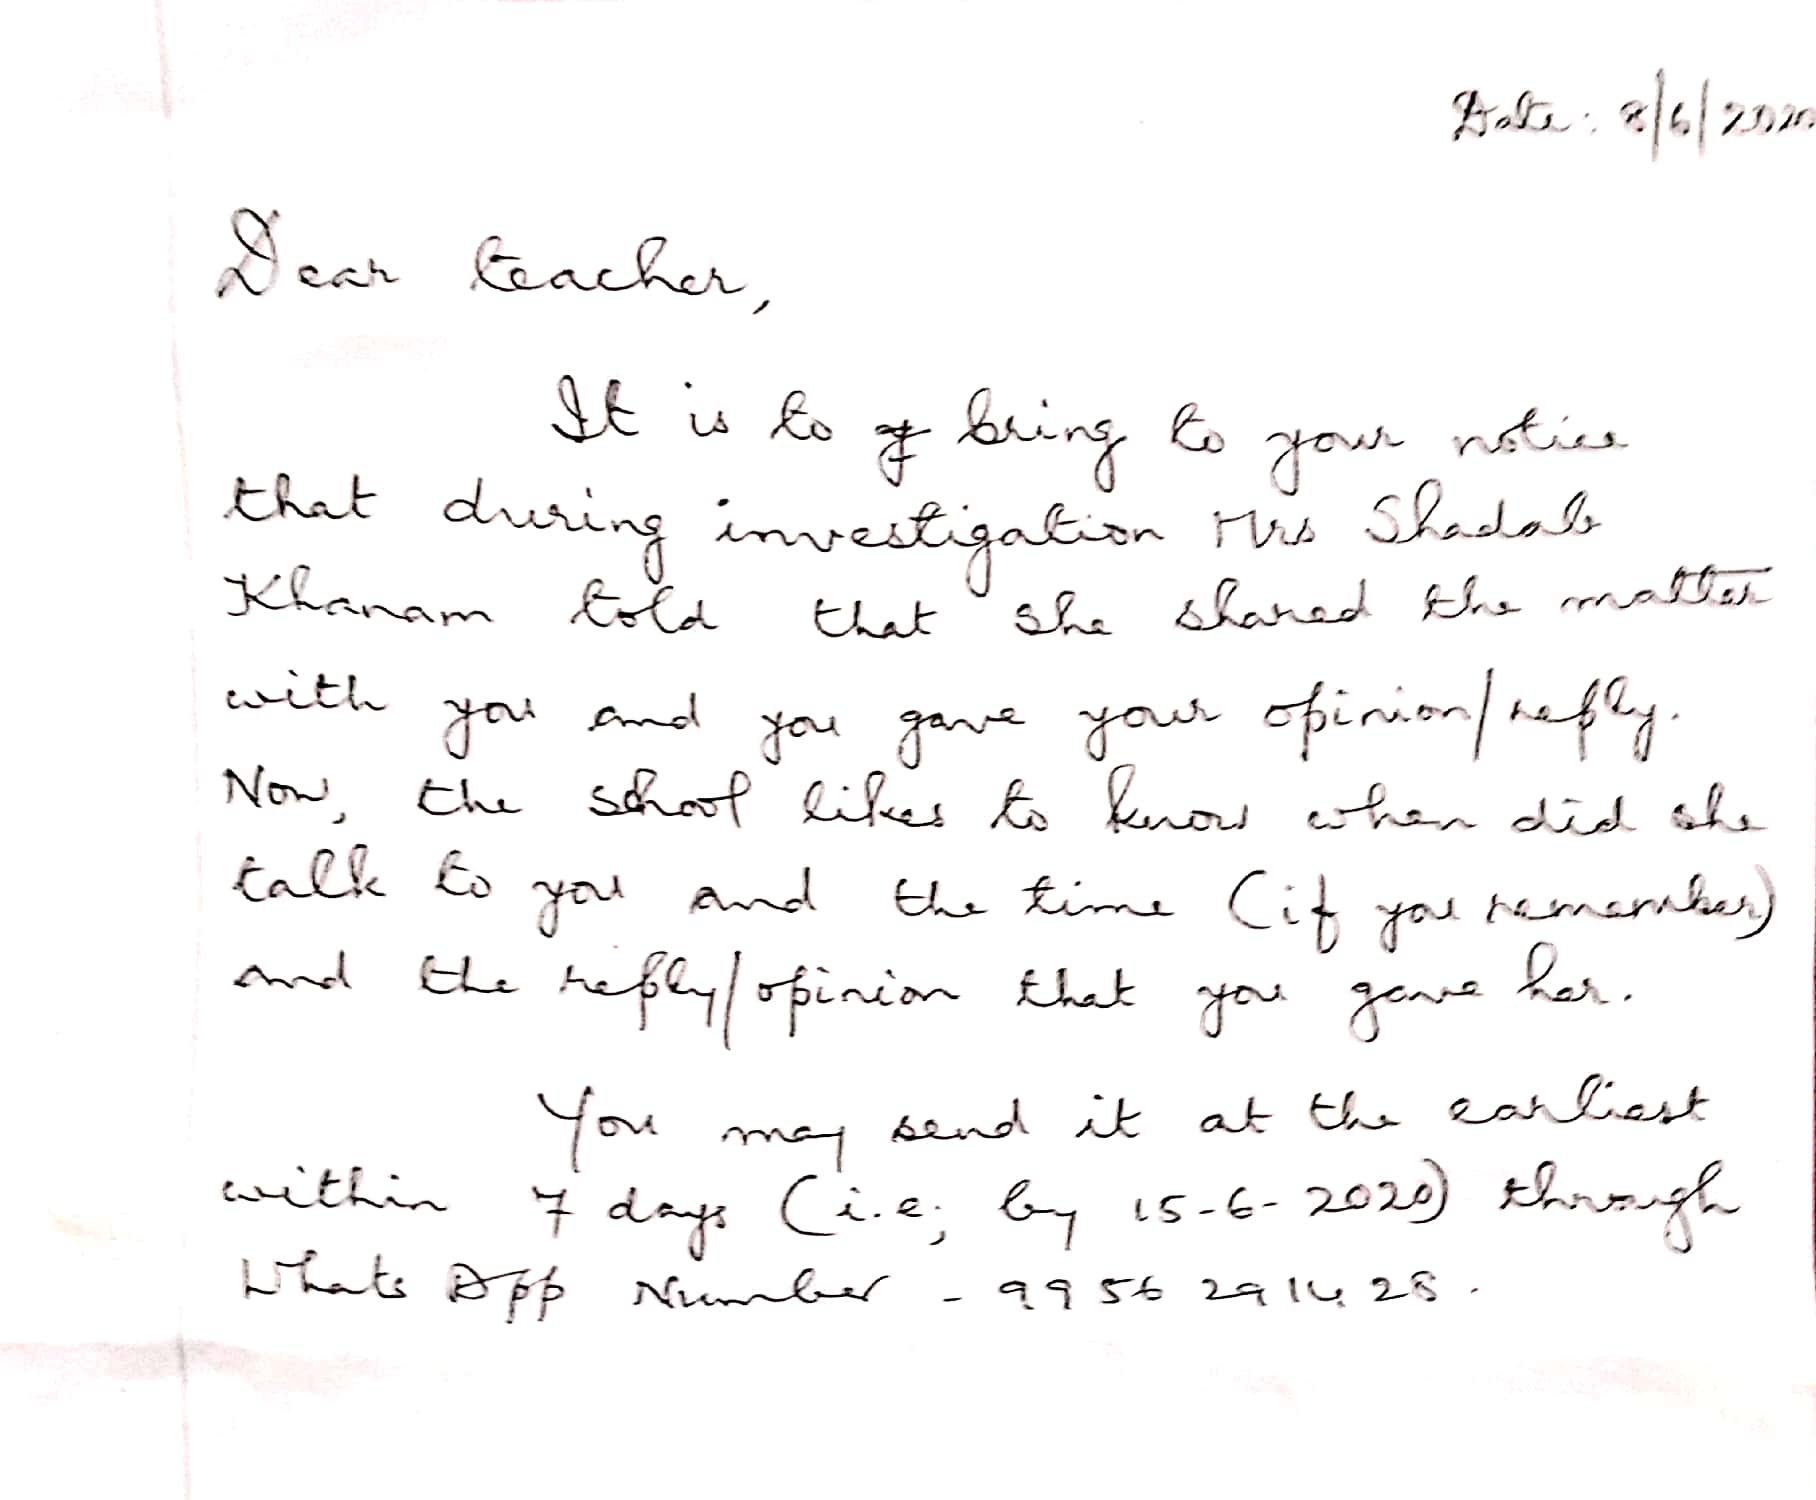 Date: 8/6/2020
Dear teacher,
It is to bring to your notice
that during investigation Mrs Shadab
Khanam told that she shared the matter
with you and you gave your opinion/reply.
Now, the school likes to know when did she
talk to you and the time (if you remember)
and the reply/opinion that you gave her.
You may send it at the earliest
within 7 days (i.e; by 15-6-2020) through
Whats App Number - 9956291428.